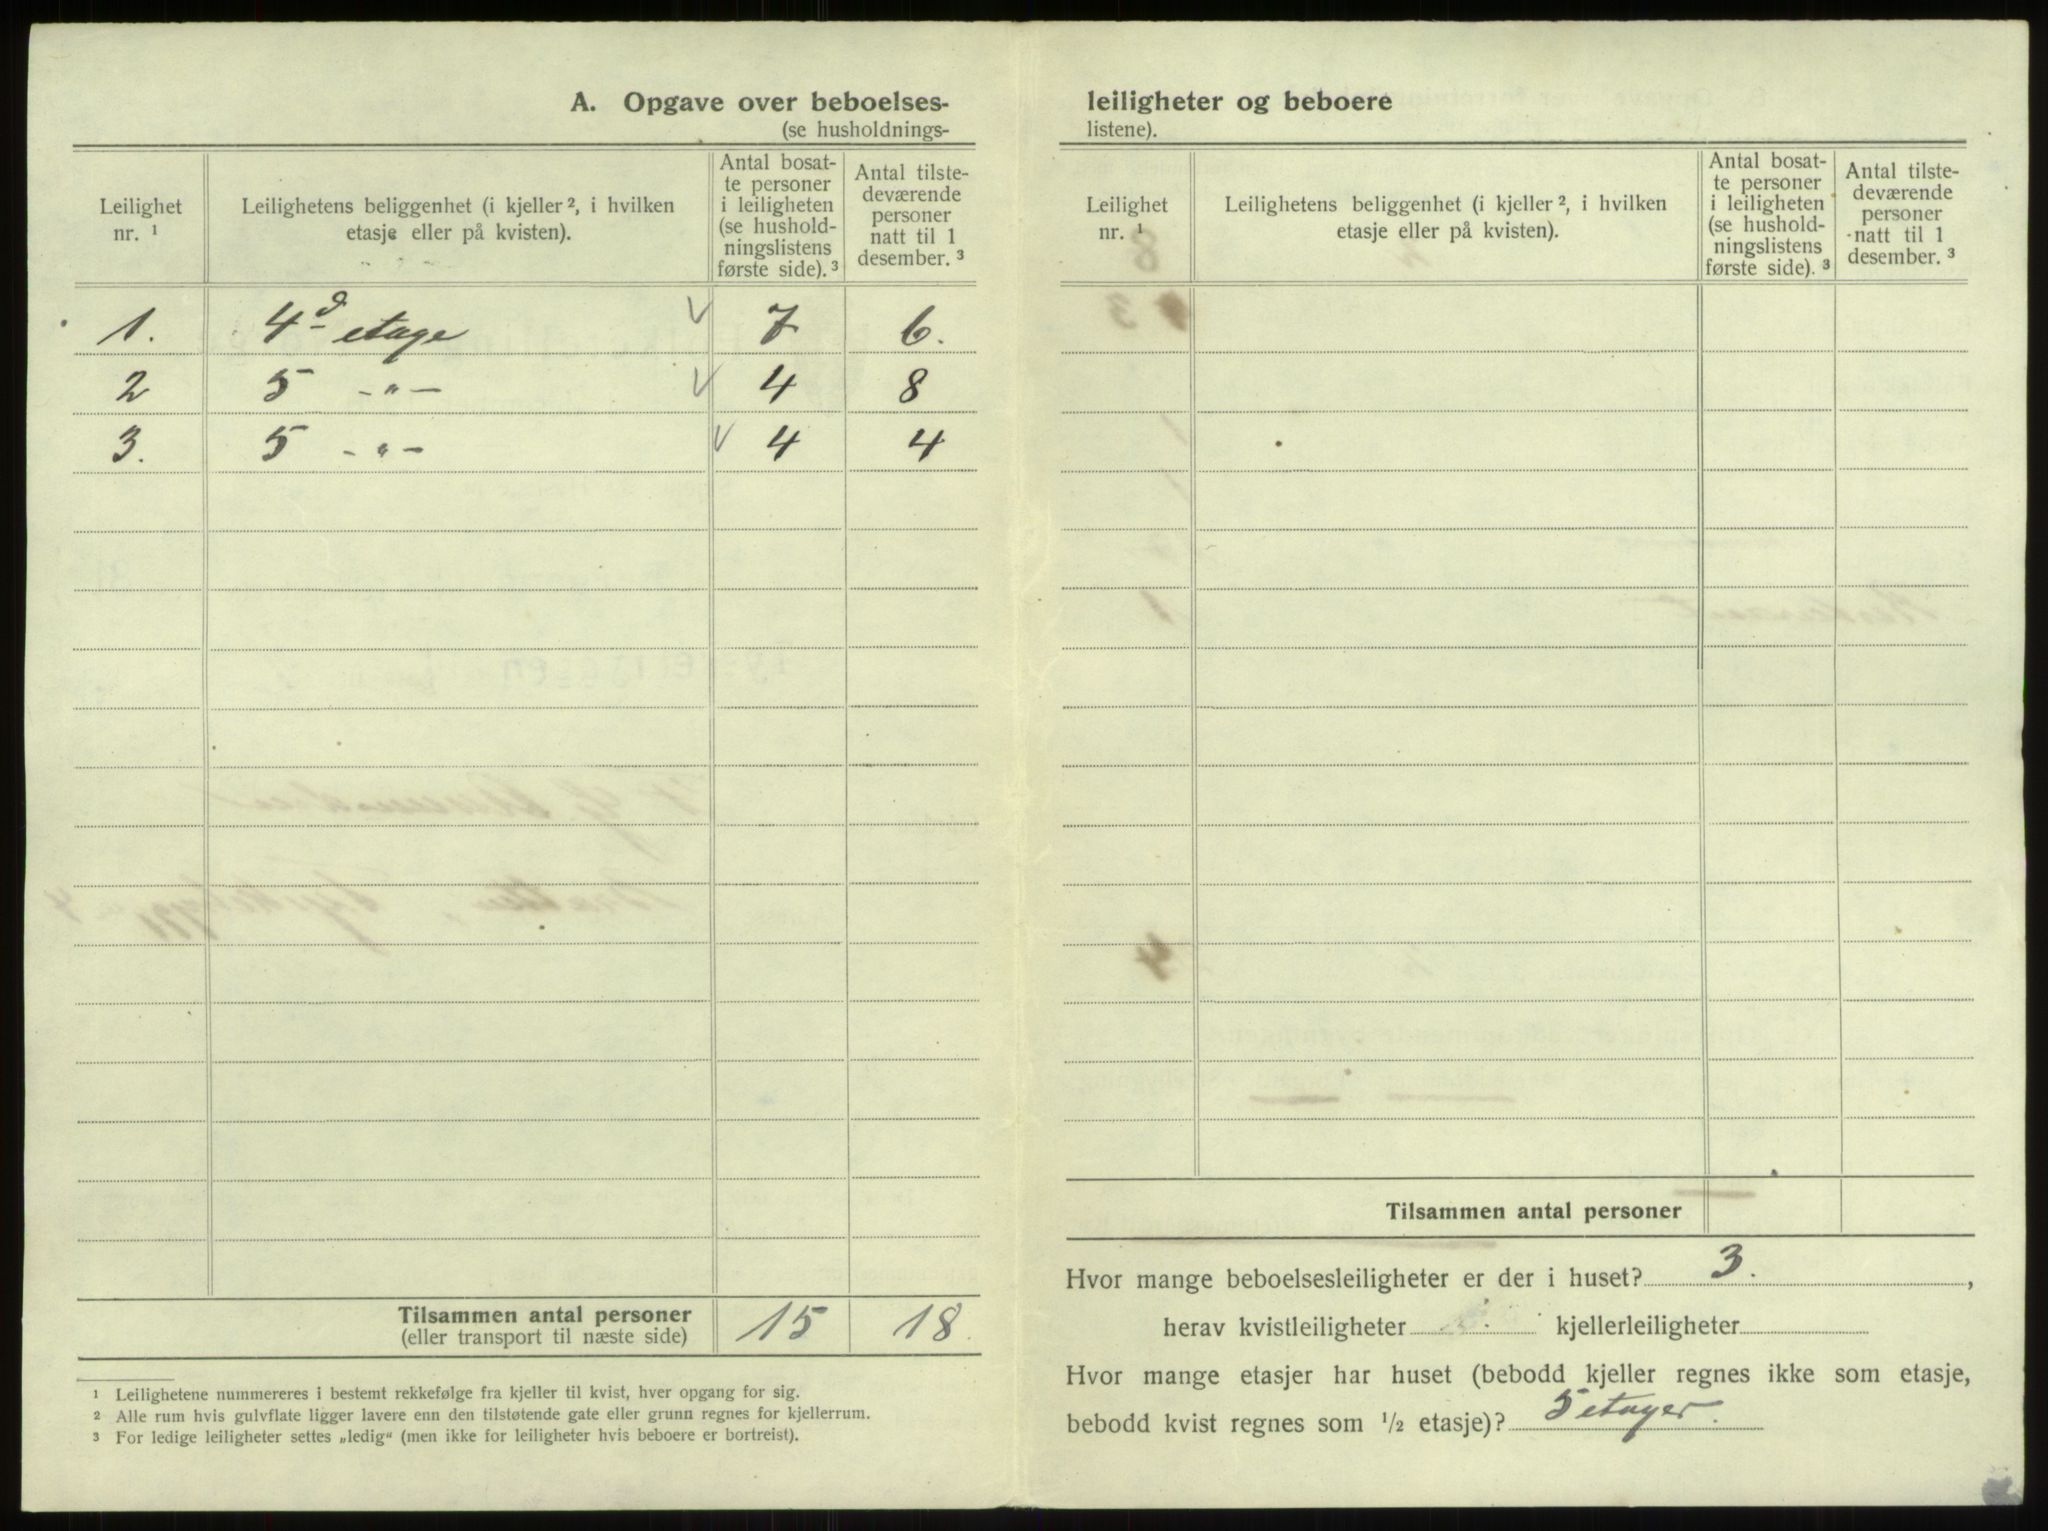 A. Opgave over beboelses-
(se husholdnings-
Leilighet nr. ¹
Leilighetens beliggenhet (i kjeller ², i hvilken etasje eller på kvisten).
Antal bosat-
te personer
i leiligheten
(se hushold-
ningslistens
første side). ³
Antal tilste-
deværende
personer
natt til 1
desember. ³
1. 4d etage 7 6.
2 5 -"- 4 8
3. 5 -"- 4 4
Tilsammen antal personer 15 18.
(eller transport til næste side)
¹ Leilighetene nummereres i bestemt rekkefølge fra kjeller til kvist, hver opgang for sig.
² Alle rum hvis gulvflate ligger lavere enn den tilstøtende gate eller grunn regnes for kjellerrum.
³ For ledige leiligheter settes „ledig“ (men ikke for leiligheter hvis beboere er bortreist).
leiligheter og beboere
listene).
Leilighet nr. ¹
Leilighetens beliggenhet (i kjeller ², i hvilken etasje eller på kvisten).
Antal bosat-
te personer
i leiligheten
(se hushold-
ningslistens
første side). ³
Antal tilste-
deværende
personer
natt til 1
desember. ³
Tilsammen antal personer
Hvor mange beboelsesleiligheter er der i huset? 3.,
herav kvistleiligheter kjellerleiligheter
Hvor mange etasjer har huset (bebodd kjeller regnes ikke som etasje,
bebodd kvist regnes som ½ etasje)? 5 etager.